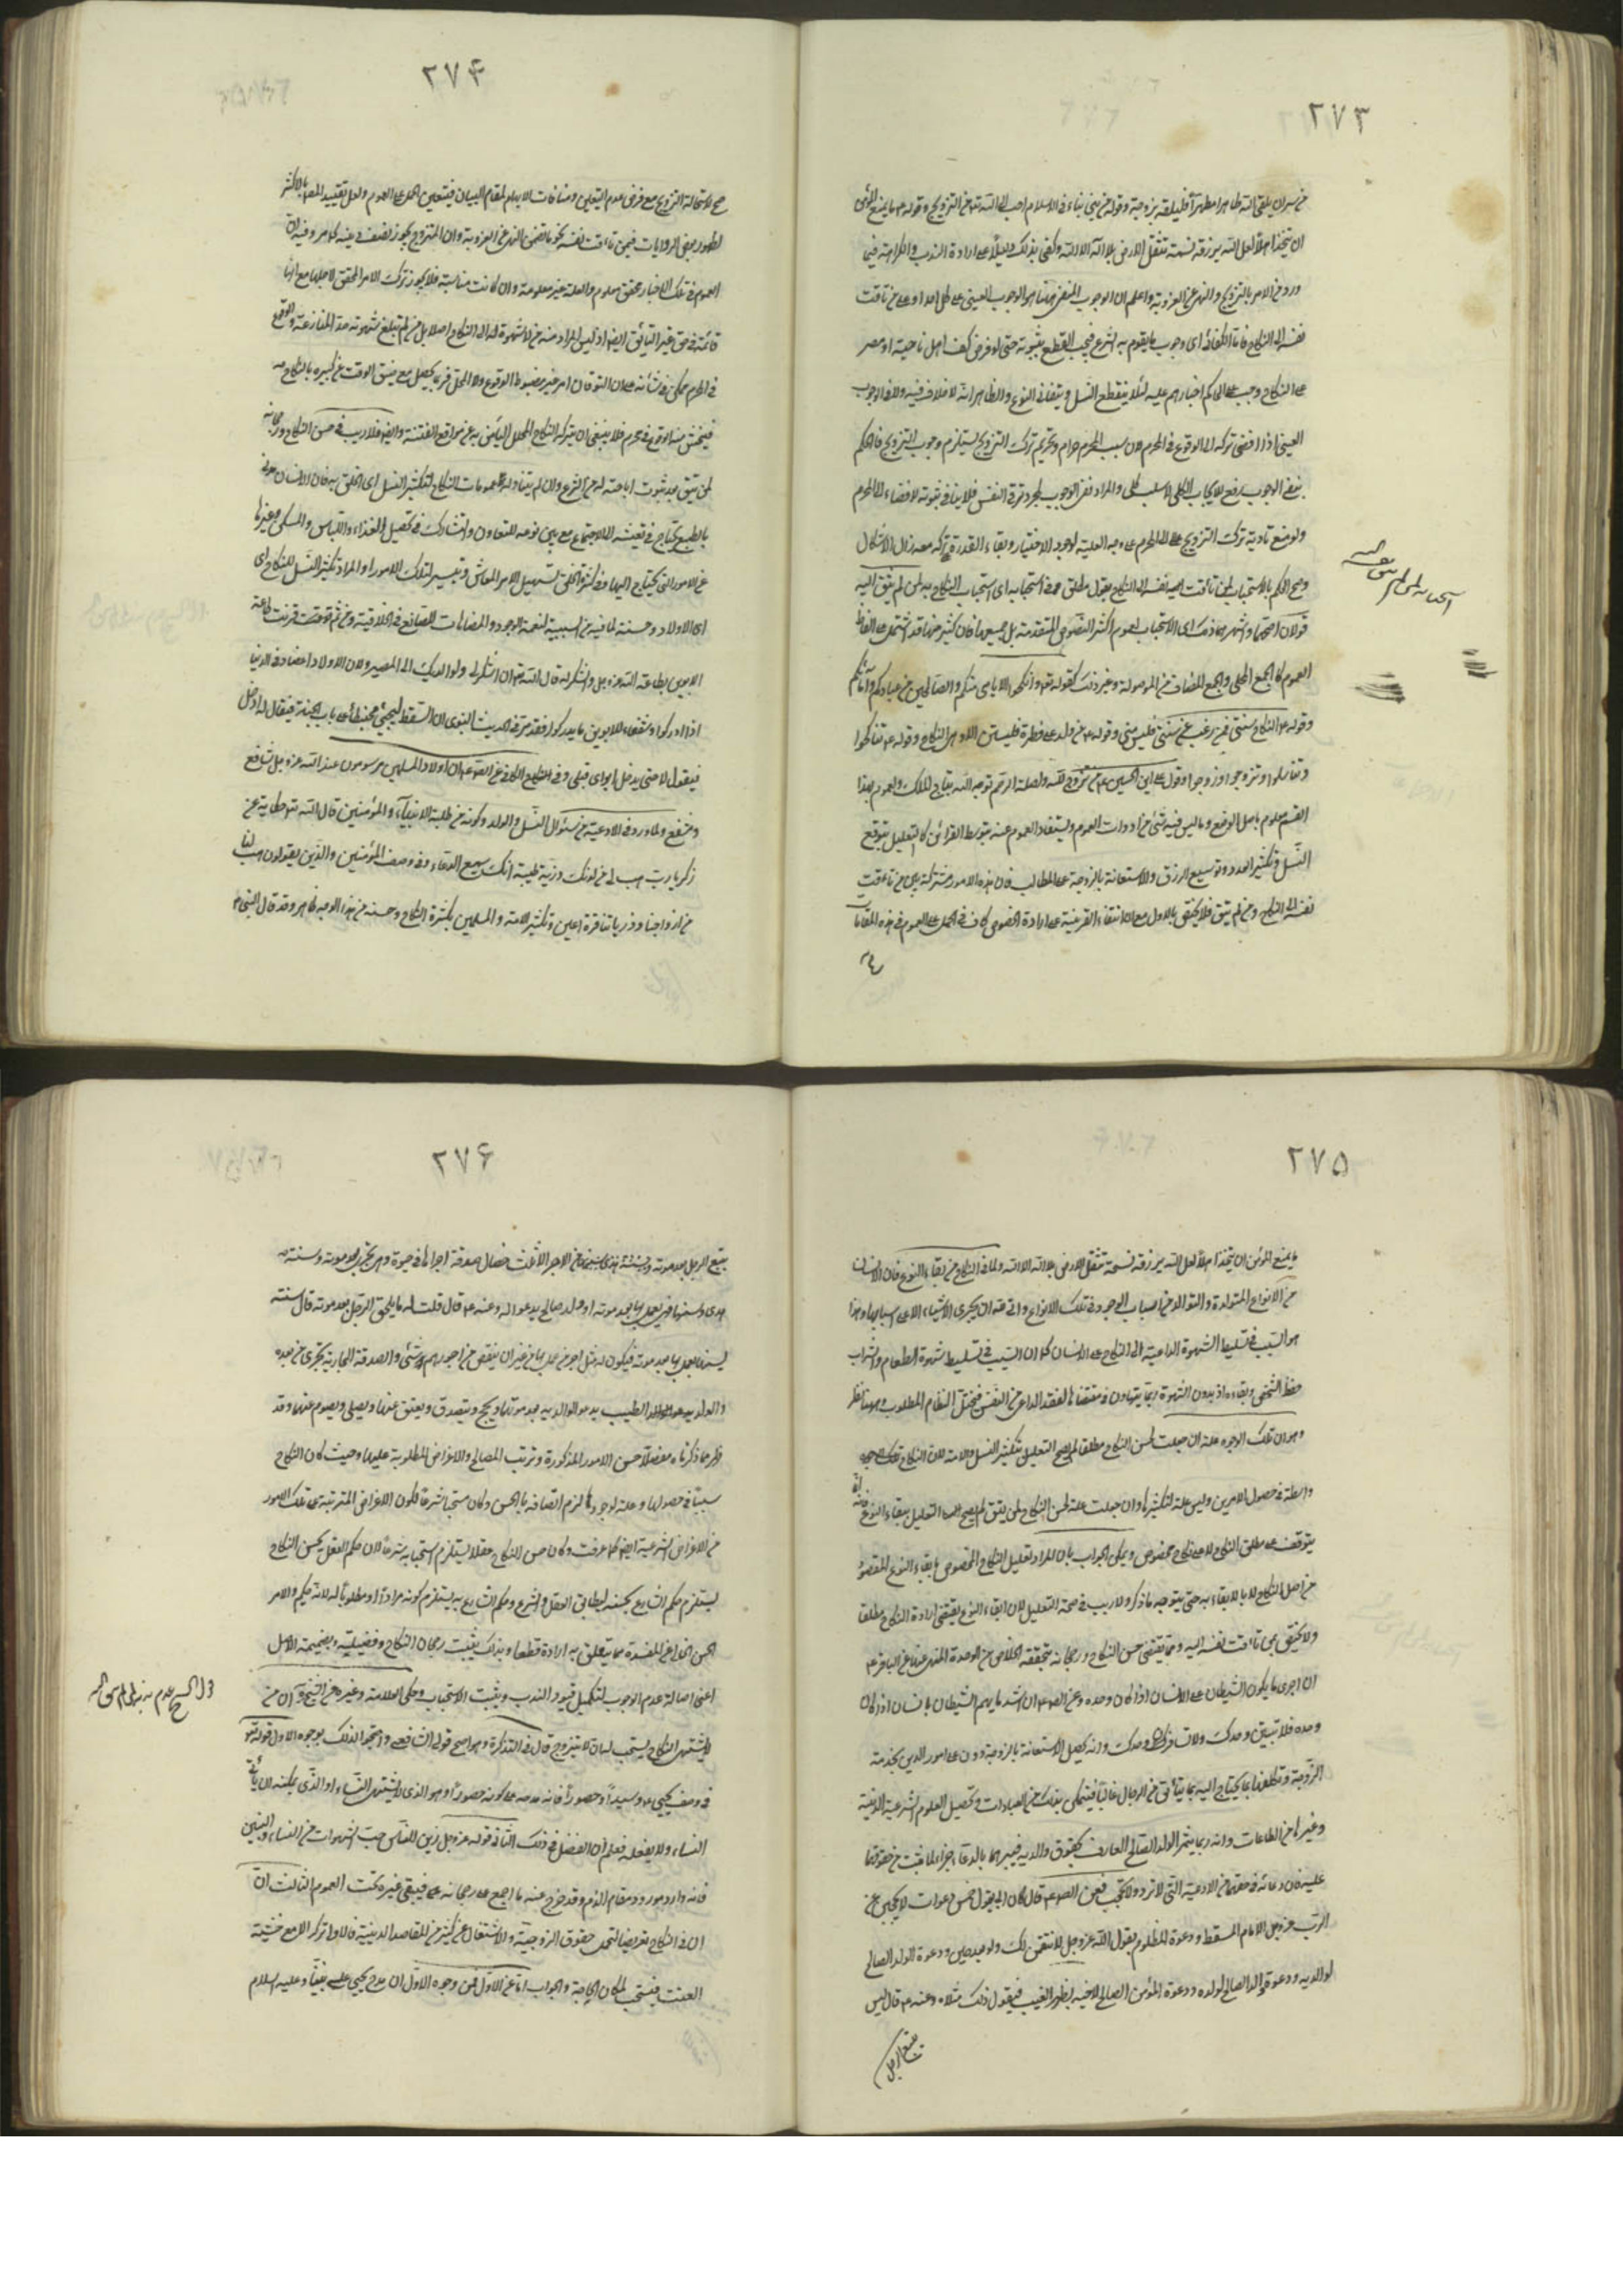 ٢٧٣
من سره ان يلقى الله طاهرا مطهرا فليلقه بزوجة وقوله ما بنى بناء فى الاسلام احب الى الله من التزويج وقوله ما يمنع المؤمن
ان يتخذ اهلا لعل الله يرزقه نسمة تثقل الارض بلا اله الا الله وكفى بذلك دليلا على ارادة الندب والكراهة فيما
ورد من الامر بالتزويج والنهى عن العزوبة واعلم ان الوجوب المنفى هنا هو الوجوب العينى على كل احد او على من تاقت
نفسه الى النكاح فاما الكفائى اى وجوب ما يقوم به الشرع فيجب القطع بثبوته حتى لو فرض كف اهل ناحية او مصر
على النكاح وجب على الحاكم اجبارهم عليه لئلا ينقطع النسل ويتفانى النوع والظاهر انه لا خلاف فيه ولا فى الوجوب
العينى اذا افضى تركه الى الوقوع فى المحرم لان سبب المحرم حرام وتحريم ترك التزويج يستلزم وجوب التزويج فالحكم
بنفى الوجوب رفع للايجاب الكلى لا سلب كلى والمراد نفى الوجوب بمجرد توق النفس فلا ينافى ثبوته لافضاء الى المحرم
ولو منع تادية ترك التزويج الى المحرم على وجه العلية لوجود الاختيار وبقاء القدرة تركه معه زال الاشكال
وصح الحكم بالاستحباب لمن تاقت نفسه الى النكاح بقول مطلق وفى استحبابه اى استحباب النكاح لمن لم يتق اليه
قولان اصحهما واشهرهما ذلك اى الاستحباب لعموم اكثر النصوص المتقدمة بل جميعها فان كثيرا منها قد اشتمل على الفاظ
العموم كالجمع المحلى والجمع المضاف من الموصولة وغير ذلك كقوله تعالى وانكحوا الايامى منكم والصالحين من عبادكم وامائكم
وقوله النكاح سنتى فمن رغب عن سنتى فليس منى وقوله من ولد على فطرة فليستن وان من النكاح وقوله تناكحوا
وتناسلوا وتزوجوا وزوجوا وقول على ابن الحسين من تزوج لله ولصلة الرحم توجه الله بتاج الملك والعموم بهذا
القسم معلوم باصل الوضع وما ليس فيه شئ من ادوات العموم ويستفاد العموم عنه بتوسط القرائن كالتعليل بتوقع
النسل وتكثير العدد وتوسيع الرزق والاستعانة بالزوجة على المطالب فان هذه الامور مشتركة بين من تاقت
نفسه الى النكاح ومن لم تتق فلا يختص بالاول مع ان انتفاء القرينة على ارادة الخصوص كاف فى الحمل على العموم فى هذه المقامات
٢٧٤
لاستحالة الترجيح مع فرض عدم التعيين ومنافات الابهام لمقام البيان فيتعين الحمل على العموم ولعل تقييد المصنف بالاكثر
لظهور بعض الروايات فيمن تاقت نفسه كما تضمن النهى عن العزوبة وان المتزوج يحرز نصف دينه كما مر وفيه ان
العموم فى تلك الاخبار محقق معلوم والعلة غير معلومة وان كانت مناسبة فلا يجوز ترك الامر المحقق لاجلها مع انها
قائمة فى حق غير التائق ايضا اذ ليس المراد منه من لا شهوة له الى النكاح اصلا بل من لم تبلغ شهوته حد المنازعة والوقوع
فى المحرم ممكن فى شانه على ان التوقان امر غير مضبوط الوقوع ولا المحل فربما يحصل مع ضيق الوقت عن كسره بالنكاح
فيخشى منه الوقوع فى محرم فلا ينبغى ان يترك النكاح المحلل البائن به عن مواقع الفتنة وايضا فلا ريب فى حسن النكاح ورجحانه
لمن يتق بعد ثبوت اباحته له من الشرع وان لم يتناوله عمومات النكاح لتكثير النسل اى الخلق به فان الانسان مدنى
بالطبع يحتاج فى تعيشه الى الاجتماع مع بنى نوعه للتعاون والتشارك فى تحصيل الغذاء واللباس والمسكن وغيرها
من الامور التى يحتاج اليها وفى كثرة الخلق تسهيل لامر المعاش وتيسير لتلك الامور او المراد تكثير النسل للنكاح اى
اى الاولاد وحسنه لما فيه من السببية لنعمة الوجود والمضاهات للصانع فى الخلاقية ومن ثم قرنت طاعة
الابوين بطاعة الله عز وجل والشكر له قال الله تعالى ان اشكر لى ولوالديك الى المصير ولان الاولاد اعضاد فى الدنيا
اذا ادركوا وشفعاء للابوين ما لم يدركوا فقد مر فى الحديث النبوى ان السقط ليجيئ محبنطئا على باب الجنة فيقال له ادخل
فيقول لا حتى يدخل ابواى قبلى وفى الكافى عن الصادق ان اولاد المسلمين موسومون عند الله عز وجل شافع
ومشفع ولما ورد فى الادعية من سئوال النسل والولد وكونه من طلبة الانبياء والمؤمنين قال الله تعالى حكاية عن
زكريا رب هب لى من لدنك ذرية طيبة انك سميع الدعاء وفى وصف المؤمنين والذين يقولون هب لنا
من ازواجنا وذرياتنا قرة اعين وتكثير الامة والمسلمين بكثرة النكاح وحسنه من هذا الوجه ظاهر وقد قال النبى
٢٧٥
ما يمنع المؤمن ان يتخذ اهلا لعل الله يرزقه نسمة تثقل الارض بلا اله الا الله ولما فى النكاح من بقاء النوع فان الانسان
من الانواع المتوالدة والتوالد من اسباب الوجود فى تلك الانواع وابى الله ان يجرى الاشياء الا على اسبابها وهذا
هو السبب فى تسليط الشهوة الداعية الى النكاح على الانسان كما ان السبب فى تسليط شهوة الطعام والشراب
حفظ الشخص وبقاءه اذ بدون الشهوة ربما يتهاون فى مقتضاها لفقد الداعى من النفس فيختل النظام المطلوب وههنا نظر
وهو ان تلك الوجوه علة ان جعلت لحسن النكاح مطلقا لم يصح التعليل بتكثير النسل والامة لان النكاح
واسطة فى حصول الامرين وليس علة لتكثيرهما وان جعلت علة لحسن النكاح لمن يتق لم يصح التعليل ببقاء النوع فانه
يتوقف على مطلق النكاح لا على نكاح مخصوص ويمكن الجواب بان المراد تعليل النكاح المخصوص بابقاء النوع المقصود
من اصل النكاح لا بالابقاء به حتى يتوجه ما ذكر ولا ريب فى صحة التعليل لان ابقاء النوع يقتضى ارادة النكاح مطلقا
ولا يختص بمن تاقت نفسه اليه ومما يقتضى حسن النكاح ورجحانه تحققه الخلاص من الوحدة المنهى عنها عن الباقر
ان اجرى ما يكون الشيطان على الانسان اذا كان وحده وعن الصادق ان اشد ما يهم الشيطان بالانسان اذا كان
وحده فلا تبيتن وحدك ولا تسافرن وحدك وانه يحصل الاستعانة بالزوجة على امور الدين بخدمة
الزوجة وتكفلها بما يحتاج اليه مما يتأتى من الرجال غالبا فيتمكن بذلك من العبادات وتحصيل العلوم الشرعية الدينية
وغيرها من الطاعات وانه ربما يثمر الولد الصالح العارف بحقوق والديه فيبرهما بالدعاء جزاء لما يثبت من حقوقهما
عليه فان دعائه فى حقهما من الادعية التى لا ترد ولا تحجب فعن الصادق قال كان ابى يقول خمس دعوات لا يحجبن عن
الرب عز وجل الامام المقسط ودعوة المظلوم يقول الله عز وجل لانتقمن لك ولو بعد حين ودعوة الولد الصالح
لوالديه ودعوة الوالد الصالح لولده ودعوة المؤمن الصالح لاخيه بظهر الغيب فيقول ذلك مثلاه وعنه قال ليس
يتبع الرجل
٢٧٦
يتبع الرجل بعد موته من الاجر الا ثلث خصال صدقة اجراها فى حيوة وهى تجرى بعد موته وسنة
هدى سنها فهى يعمل بها بعد موته او ولد صالح يدعو له وعنه قال قلت له ما يلحق الرجل بعد موته قال سنة
يسنها يعمل بها بعد موته فيكون له مثل اجر من عمل بها من غير ان ينقص من اجورهم شئ والصدقة الجارية تجرى من بعده
والولد الطيب يدعو لوالديه بعد موتهما ويحج ويتصدق ويعتق عنهما ويصلى ويصوم عنهما وقد
ظهر مما ذكرناه مفصلا حسن الامور المذكورة وترتب المصالح والاغراض المطلوبة عليها وحيث كان النكاح
سببا فى حصولها وعلة لوجودها لزم اتصافه بالحسن وكان مستحبا شرعا لكون الاغراض المترتبة على تلك الامور
من الاغراض الشرعية ايضا كما عرفت وكان حسن النكاح عقلا يستلزم استحبابه شرعا لان حكم العقل بحسن النكاح
يستلزم حكم الشارع بحسنه لتطابق العقل والشرع وحكم الشارع به يستلزم كونه مرادا او مطلوبا له لانه حكيم والامر
الحسن الخالى عن المفسدة مما يتعلق به ارادة قطعا وبذلك يثبت رجحان النكاح وفضيلته وبضميمة الاصل
اعنى اصالة عدم الوجوب لتكميل قيود الندب ويثبت الاستحباب وحكى العلامة وغيره عن الشيخ ان من
لا يشتهى النكاح يستحب له ان لا يتزوج قال فى التذكرة وهو اصح قولى الشافعى واحتجوا لذلك بوجوه الاول قوله تعالى
فى وصف يحيى وسيدا وحصورا فانه مدحه على كونه حصورا وهو الذى لا يشتهى النساء او الذى يمكنه ان يأتى
النساء ولا يفعله فعلم ان الفضل فى ذلك الثانى قوله عز وجل زين للناس حب الشهوات من النساء والبنين
فانه وارد مورد مقام الذم وقد خرج عنه ما اجمع على رجحانه فيبقى غيره تحت العموم الثالث ان
ان فى النكاح تعريضا لتحمل حقوق الزوجية والاشتغال عن كثير من المقاصد الدينية فالاولى تركه الا مع خشية
العنت فيستحب لمكان الحاجة والجواب اما عن الاول فمن وجوه الاول ان مدح يحيى على نبينا وعليه السلام